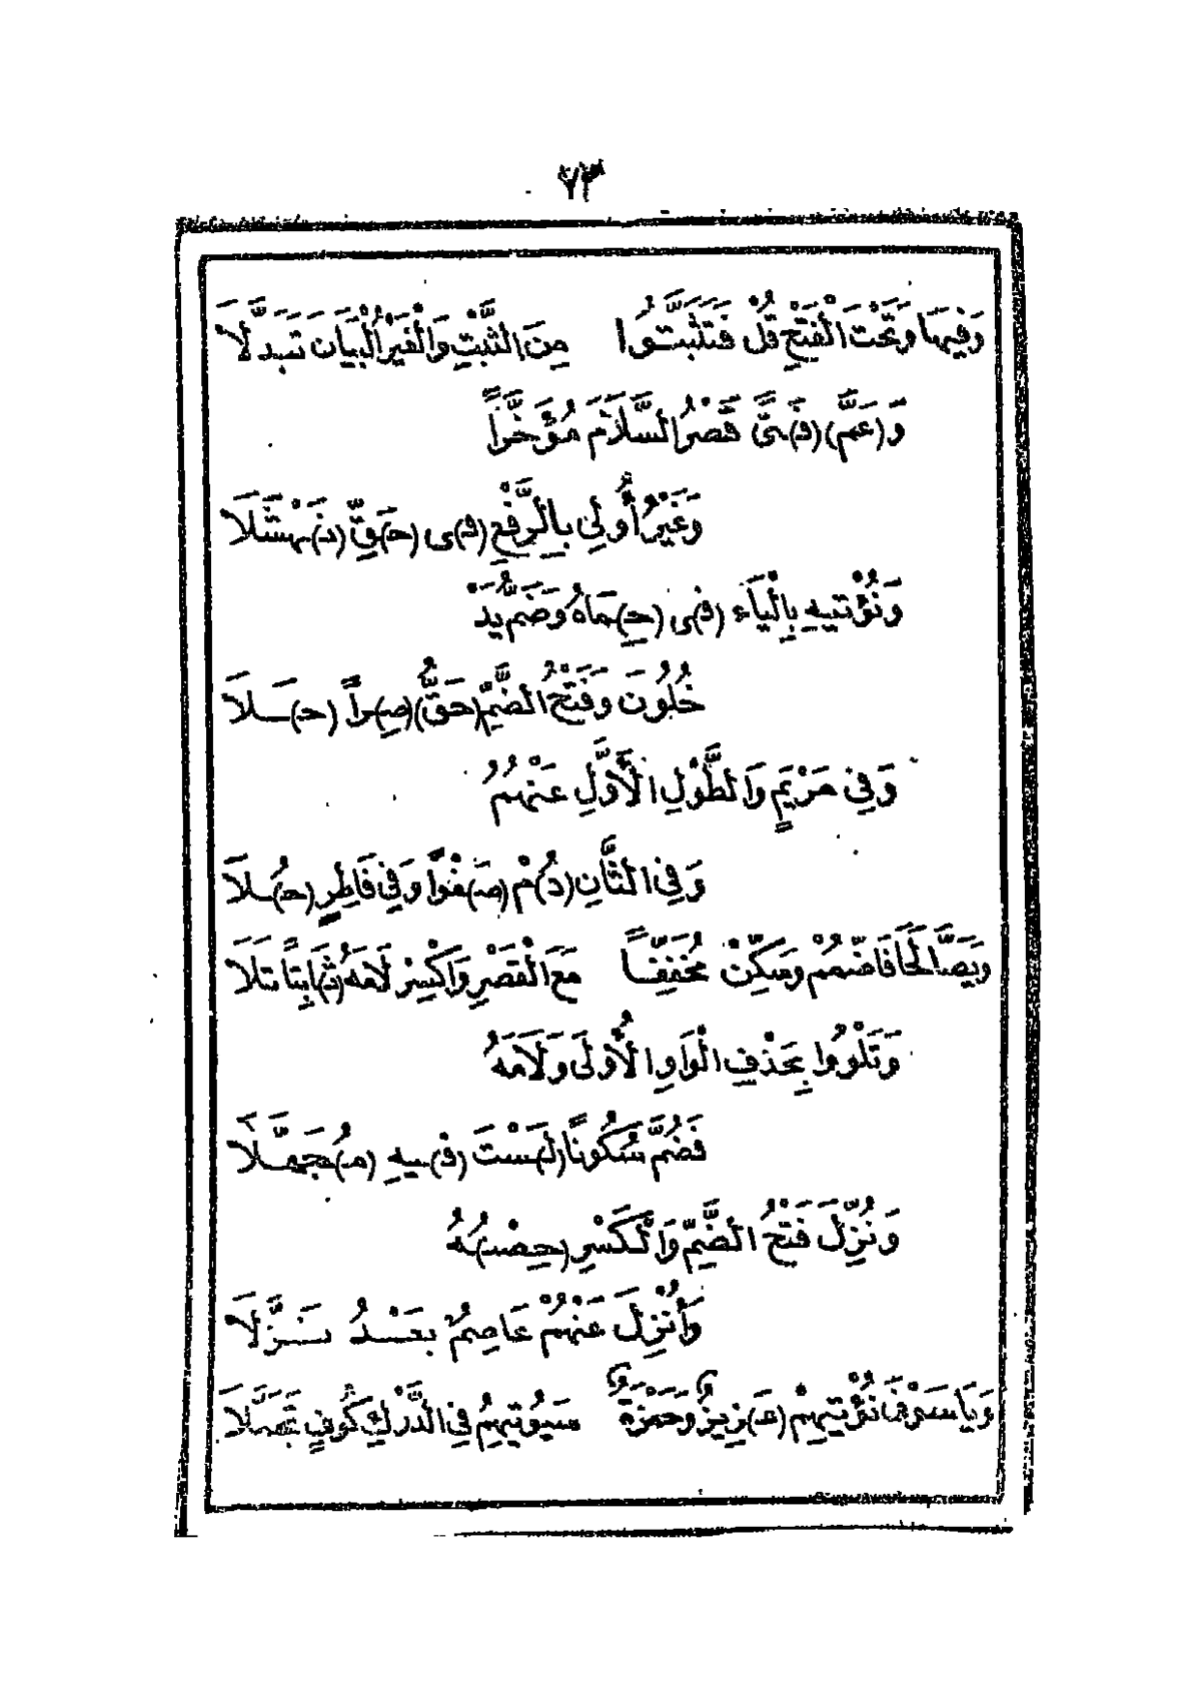 ٧٣
وَفِيهَا وَتَحْتَ الْفَتْحِ قُلْ فَتَثَبَّتُوا مِنَ الثَّبْتِ وَالْغَيْرُ الْبَيَانَ تَبَدَّلَا
وَ(عَمَّ) (فَ)تًى قَصْرُ السَّلَامَ مُؤَخَّرًا
وَغَيْرُ أُولِي بِالرَّفْعِ (فِ)ى (حَ)قِّ (نَ)هْشَلَا
وَنُؤْتِيهِ بِالْيَاءِ (فِ)ى (حِ)مَاهُ وَضَمُّ يَدْ
خُلُونَ وَفَتْحُ الضَّمِّ (حَقٌّ) (صِ)رًا (حَ)لَا
وَفِي مَرْيَمٍ وَالطَّوْلِ الْأَوَّلِ عَنْهُمُ
وَفِي الثَّانِ (دُ)مْ (صَ)فْوًا وَفِي فَاطِرٍ (حَ)لَا
وَيَصَّالَحَا فَاضْمُمْ وَسَكِّنْ مُخَفِّفًا مَعَ الْقَصْرِ وَاكْسِرْ لَامَهُ (ثَ)ابِتًا تَلَا
وَتَلْوُوا بِحَذْفِ الْوَاوِ الْأُولَى وَلَامَهُ
فَضُمَّ سُكُونًا (لَ)سْتَ (فِ)يهِ (مُ)جَهَّلَا
وَنُزِّلَ فَتْحُ الضَّمِّ وَالْكَسْرِ (حِصْنُ)هُ
وَأُنْزِلَ عَنْهُمْ عَاصِمٌ بَعْدُ نَزَّلَا
وَيَا سَوْفَ نُؤْتِيهِمْ (عَ)زِيزٌ وَحَمْزَةٌ سَيُؤْتِيهِمُ فِي الدَّرْكِ كُوفٍ تَحَمَّلَا